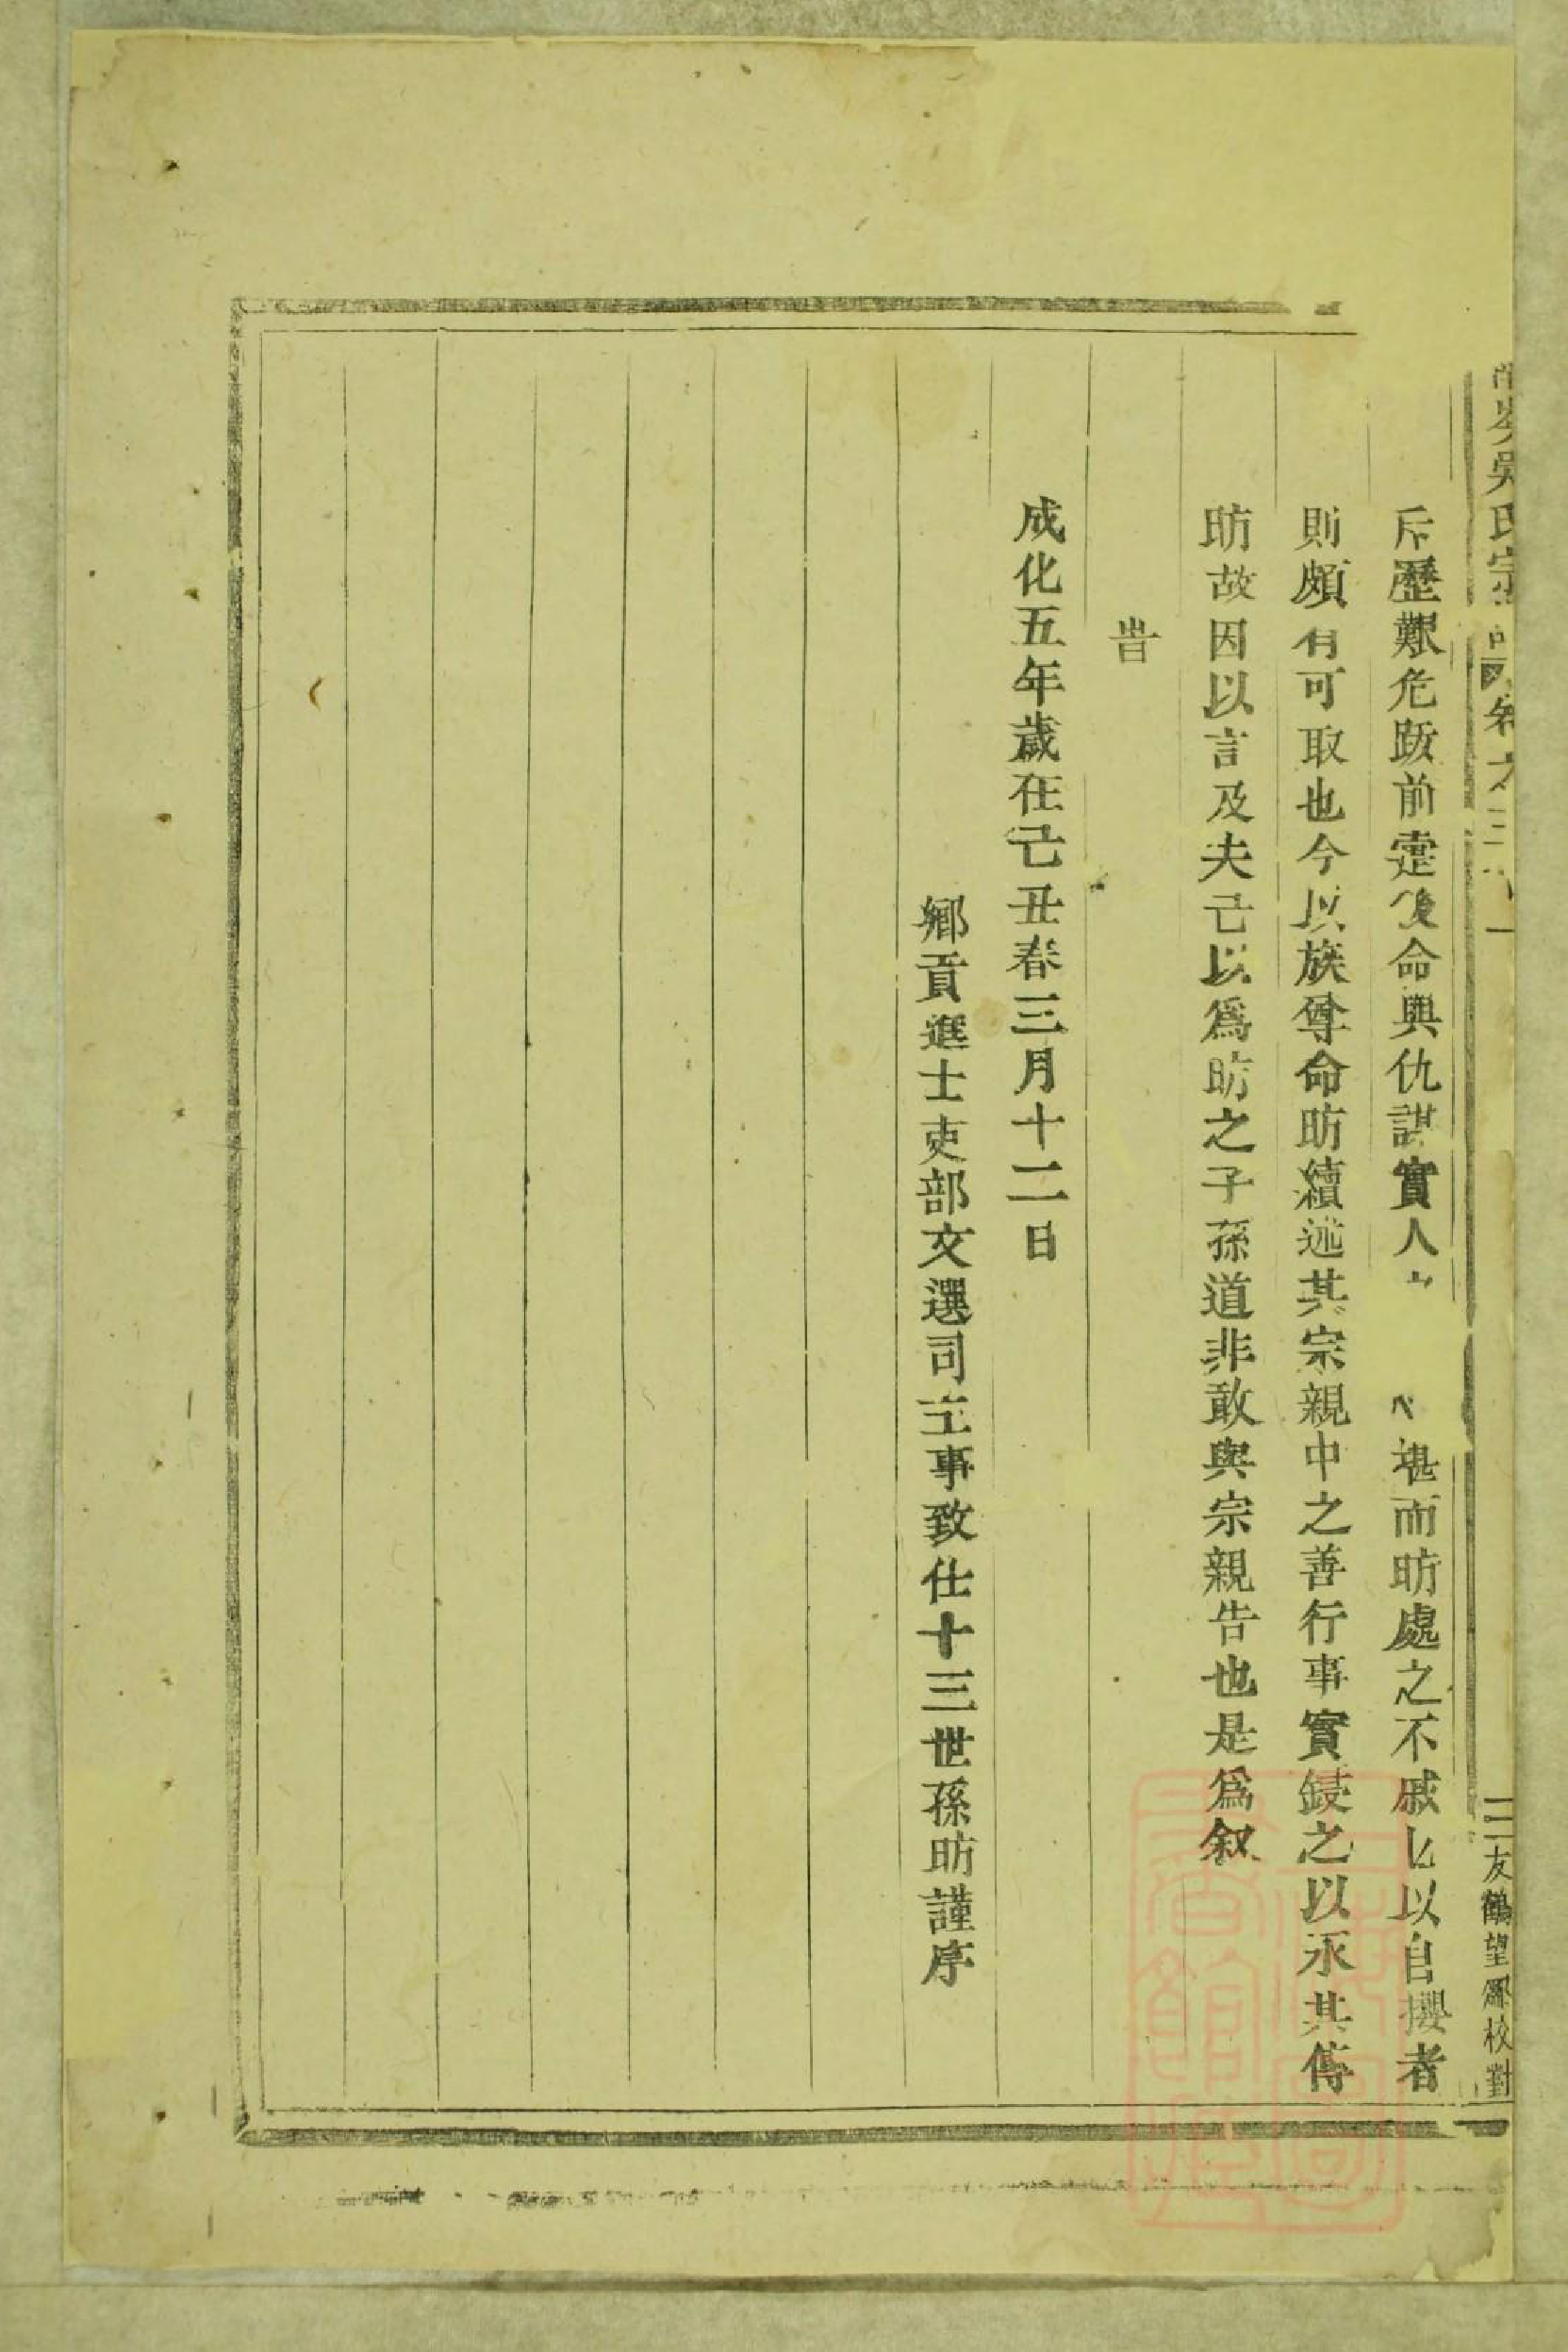 岑吳氏宗卷之三一
二友鶴望鄹校對
斥歷艱危跋前疐後命與仇謀實人堪而昉處之不戚以自攖者
則頗有可取也今以族尊命昉續述其宗親中之善行事實鋟之以永其傳
昉故因以言及夫己以爲昉之子孫道非敢與宗親告也是爲叙
旹
成化五年歲在己丑春三月十二日
鄉貢進士吏部文選司主事致仕十三世孫昉謹序